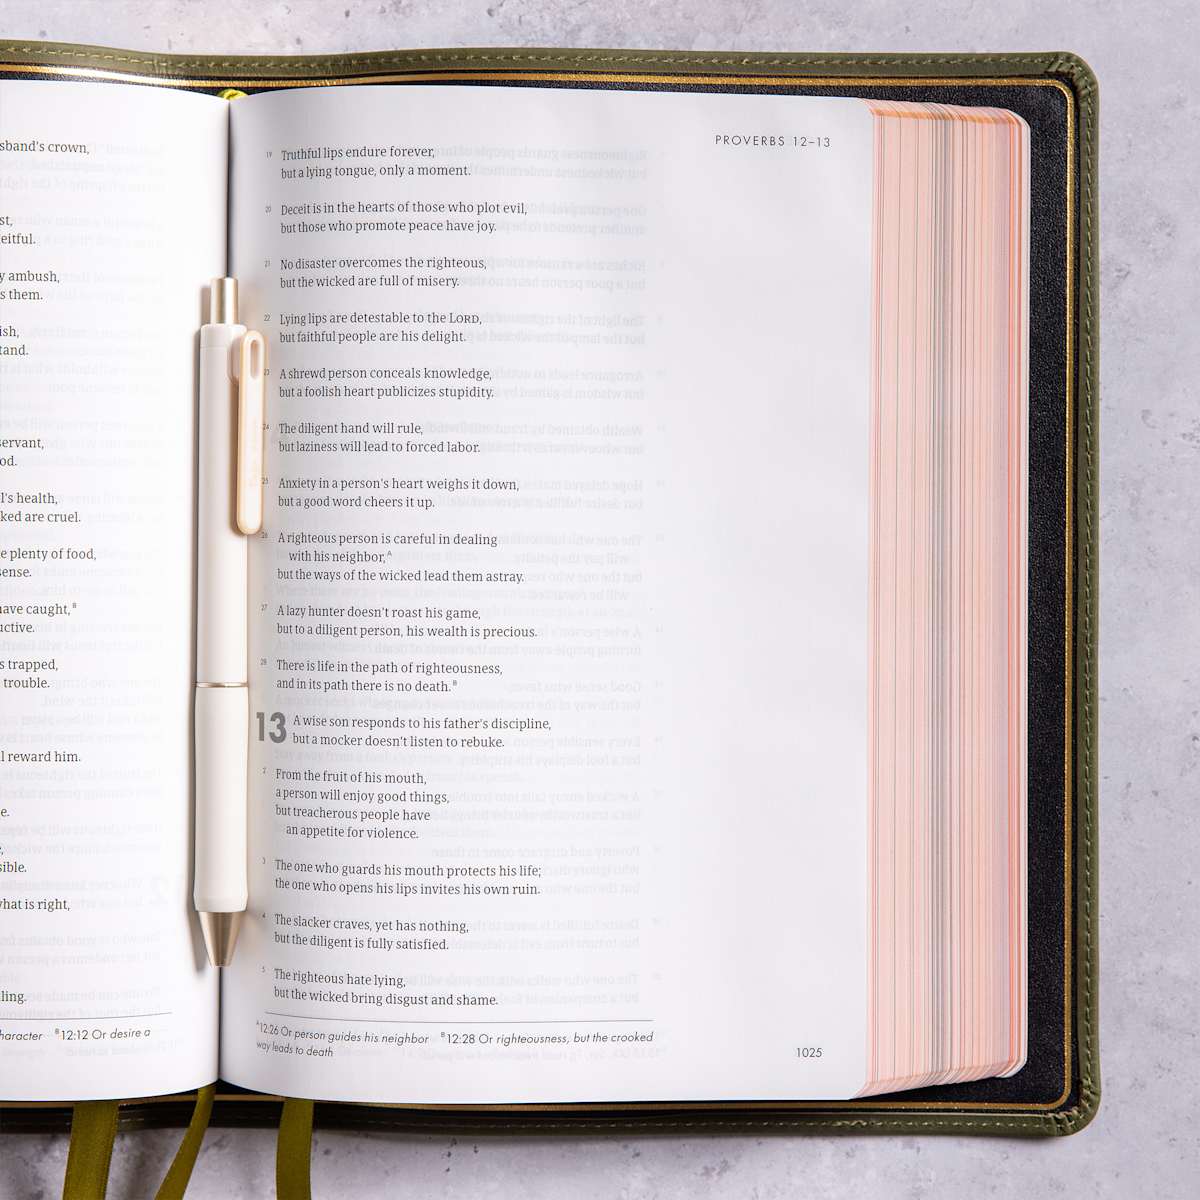 sband's crown,
st,
eitful.
y ambush,
s them.
ish,
tand.
servant,
od.
l's health,
ked are cruel.
e plenty of food,
sense.
have caught,ᴮ
uctive.
s trapped,
trouble.
l reward him.
e.
e,
sible.
what is right,
ling.
haracter ᴮ12:12 Or desire a
PROVERBS 12–13
19 Truthful lips endure forever,
but a lying tongue, only a moment.
20 Deceit is in the hearts of those who plot evil,
but those who promote peace have joy.
21 No disaster overcomes the righteous,
but the wicked are full of misery.
22 Lying lips are detestable to the LORD,
but faithful people are his delight.
23 A shrewd person conceals knowledge,
but a foolish heart publicizes stupidity.
24 The diligent hand will rule,
but laziness will lead to forced labor.
25 Anxiety in a person's heart weighs it down,
but a good word cheers it up.
26 A righteous person is careful in dealing
with his neighbor,ᴬ
but the ways of the wicked lead them astray.
27 A lazy hunter doesn't roast his game,
but to a diligent person, his wealth is precious.
28 There is life in the path of righteousness,
and in its path there is no death.ᴮ
13 A wise son responds to his father's discipline,
but a mocker doesn't listen to rebuke.
2 From the fruit of his mouth,
a person will enjoy good things,
but treacherous people have
an appetite for violence.
3 The one who guards his mouth protects his life;
the one who opens his lips invites his own ruin.
4 The slacker craves, yet has nothing,
but the diligent is fully satisfied.
5 The righteous hate lying,
but the wicked bring disgust and shame.
ᴬ12:26 Or person guides his neighbor ᴮ12:28 Or righteousness, but the crooked
way leads to death
1025